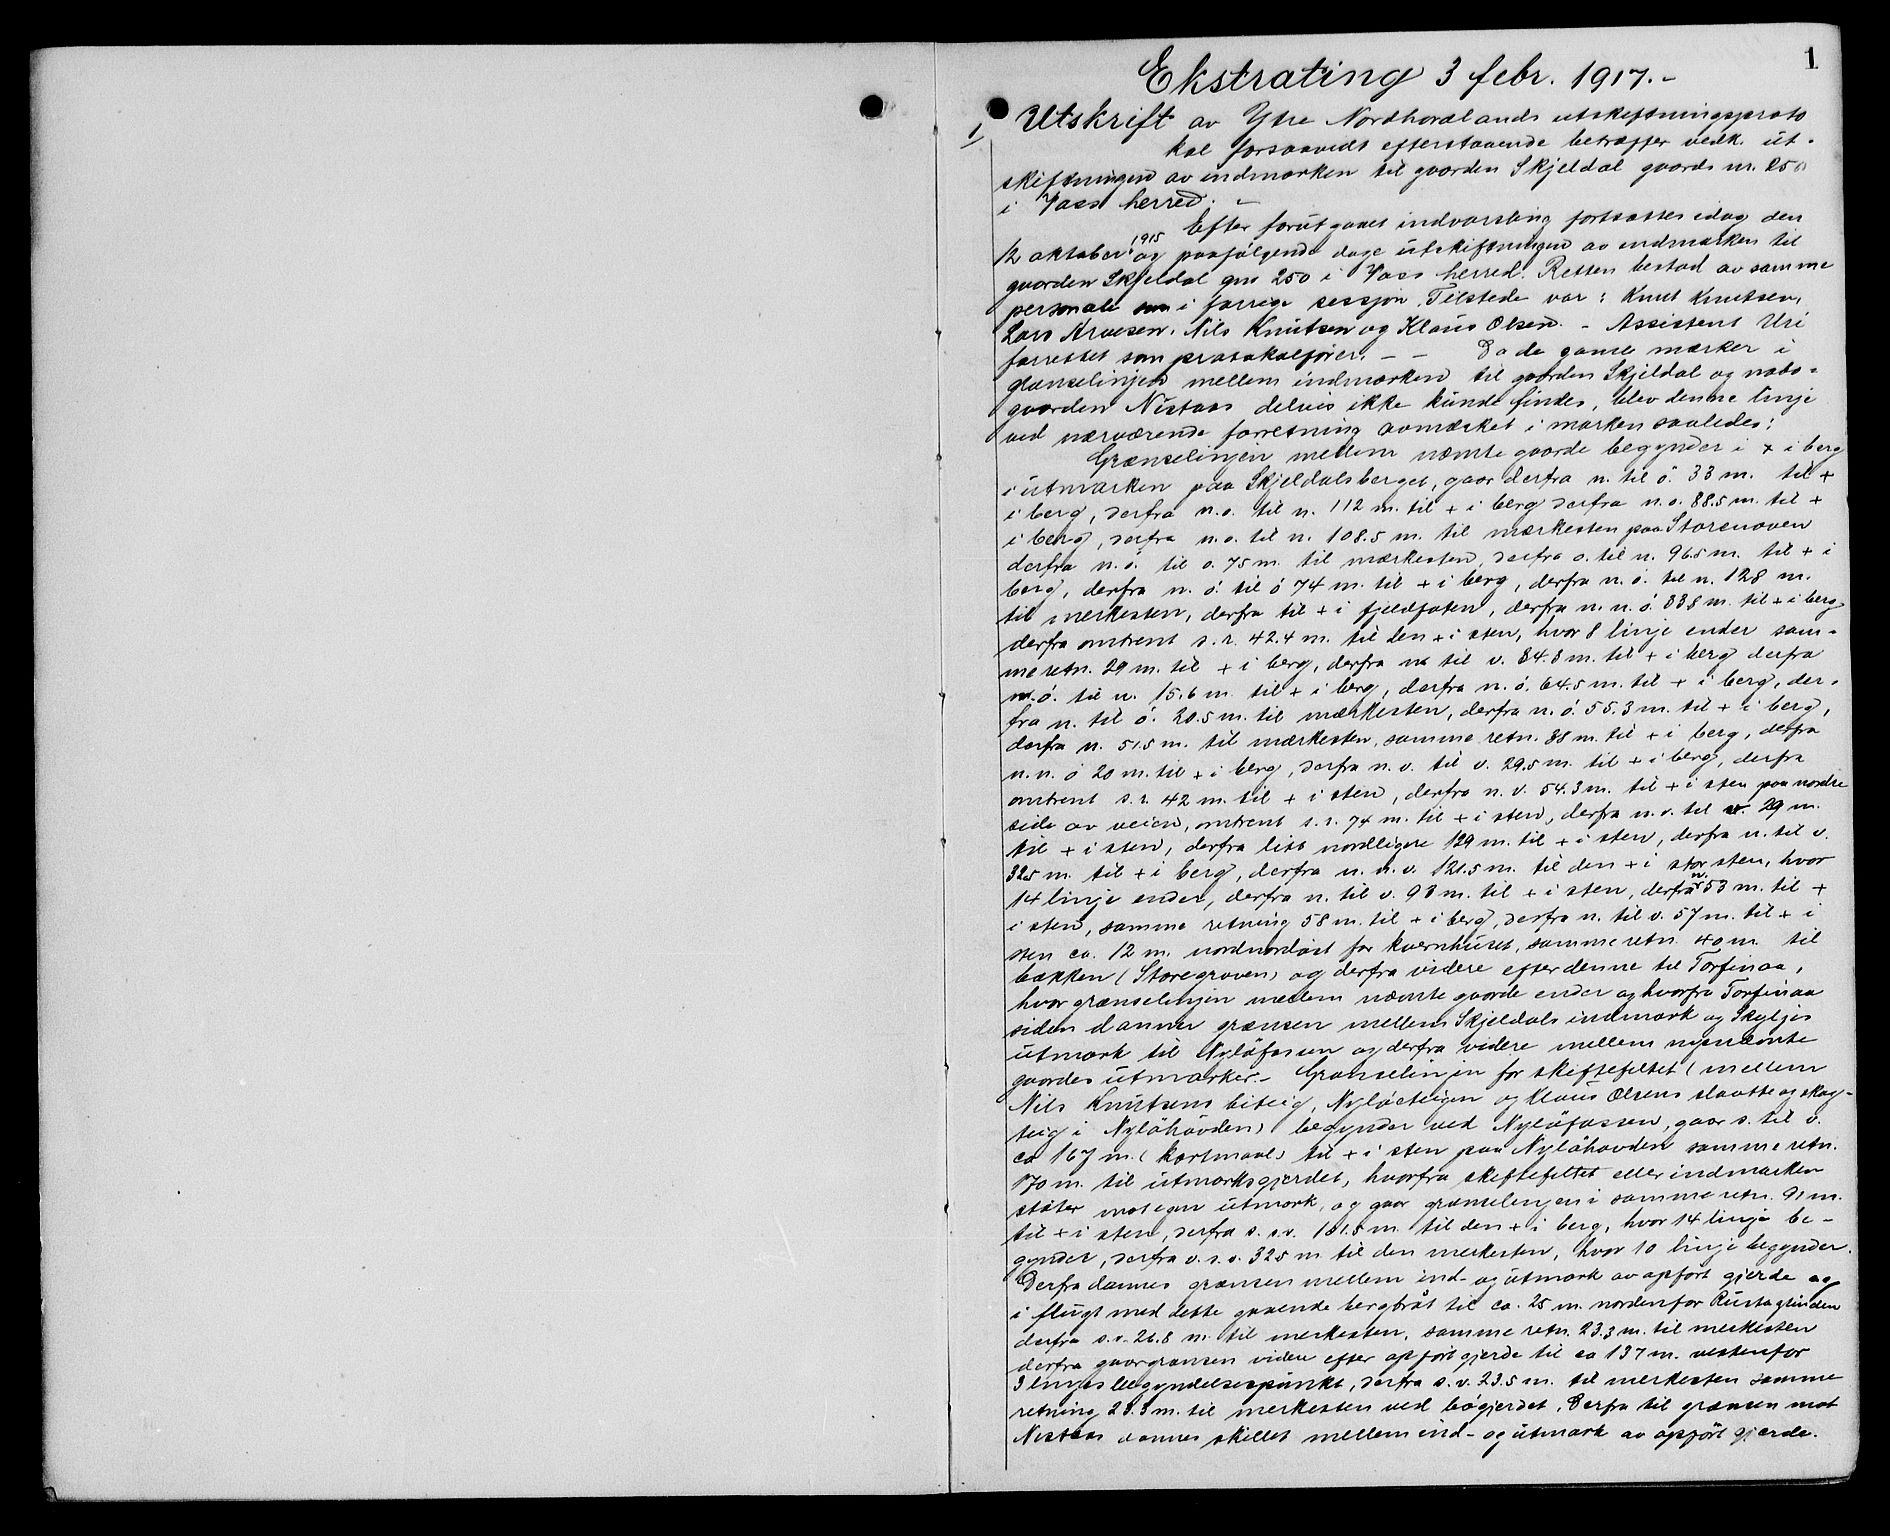 1
Ekstrating 3 febr. 1917.-
1, Utskrift av Ytre Nordhordlands utskiftningsproto
kol forsaavidt efterstaaende betræffer vedk. ut-
skiftningen av indmarken til gaarden Skjeldal gaards nr. 250
i Voss herred. -
Efter forut gaaet indvarsling fortsattes idag den
12 oktober 1915 og paafølgende dage utskiftningen av indmarken til
gaarden Skjeldal gnr 250 i Voss herred. Retten bestod av samme
personale som i forrige sessjon. Tilstede var: Knut Knutsen,
Lars Arvesen, Nils Knutsen og Klaus Olsen. - Assistent Uri
forrettet som protokolfører. - - Da de gamle merker i
grænselinjen mellem indmarken til gaarden Skjeldal og nabo-
gaarden Nistaas delvis ikke kunde findes, blev denne linje
ved nærværende forretning avmerket i marken saaledes:
Grænselinjen mellem nævnte gaarde begynder i + i berg
i utmarken paa Skjeldalsberget, gaar derfra n. til ø. 33 m. til +
i berg, derfra n.ø. til n. 112 m. til + i berg derfra n.ø. 88.5 m. til +
i berg, derfra n.ø. til n. 108.5 m. til merkesten paa Storenoven
derfra n.ø. til ø. 75 m til merkesten, derfra ø. til n. 96.5 m. til + i
berg, derfra n.ø. til ø 74 m. til + i berg, derfra n.ø. til n. 128 m.
til merkesten, derfra til + i fjeldfoten, derfra n.n.ø. 33.8 m. til + i berg
derfra omtrent s.r. 42.4 m. til den + i sten, hvor 8 linje ender sam-
me retn. 29 m. til + i berg, derfra n til v. 34.3 m. til + i berg derfra
n.ø. til n. 15.6 m. til + i berg, derfra n.ø. 64.5 m. til + i berg, der-
fra n. til ø. 20.5 m. til merkesten, derfra n.ø. 55.3 m. til + i berg,
derfra n. 51.5 m. til merkesten, samme retn. 38 m. til + i berg, derfra
n.n.ø 20 m. til + i berg, derfra n.v. til v. 29.5 m. til + i berg, derfra
omtrent s.r. 42 m. til + i sten, derfra n.v. 54.3 m. til + i sten paa nordre
side av veien, omtrent s.r. 74 m. til + i sten, derfra n.v. til 29 m.
til + i sten, derfra litt nordligere 129 m. til + i sten, derfra n. til v.
32.5 m. til + i berg, derfra n.n.v. 121.5 m. til den + i stor sten, hvor
14 linje ender, derfra n. til v. 93 m. til + i sten, derfra n. 53 m. til +
i sten, samme retning 58 m. til + i berg, derfra n. til v. 57 m. til + i
sten ca. 12 m. nordnordøst for kvernhuset, samme retn 40 m. til
bækken (Storegroven) og derfra videre efter denne til Torfinaa,
hvor grænselinjen mellem nævnte gaarde ender og hvorfra Torfinaa
siden danner grænsen mellem Skjeldals indmark og Skyljes
utmark til Nyløfossen og derfra videre mellem nysnævnte
gaardes utmarker. - Grænselinjen for skiftefeltet (mellem
Nils Knutsens biteig, Nyløeteigen og Klaus Olsens slaatte og skog-
teig i Nyløhovden) begynder ved Nyløfossen, gaar s. til v.
ca 167 m. (kartmaal) til + i sten paa Nyløhovden samme retn.
170 m. til utmarksgjerdet, hvorfra skiftefeltet eller indmarken
støter mot egen utmark, og gaar grænselinjen i samme retn. 91 m.
til + i sten, derfra s.s.v. 101.5 m. til den + i berg, hvor 14 linje be-
gynder, derfra v.s.v. 32.5 m til den merkesten, hvor 10 linje begynder.
Derfra dannes grænsen mellem ind- og utmark av opført gjerde og
i flugt med dette gaaende bergbrot til ca. 25 m. nordenfor Rustagrinden
derfra s.v. 21.8 m. til merkesten, samme retn. 23.3 m. til merkesten
derfra gaar grænsen videre efter opført gjerde til ca 137 m. vestenfor
3 linjes begyndelsespunkt, derfra s.v. 23.5 m. til merkesten samme
retning 23.3 m. til merkesten ved bøgjerdet. Derfra til grænsen mot
Nistaas dannes skillet mellem ind- og utmark av opført gjerde.